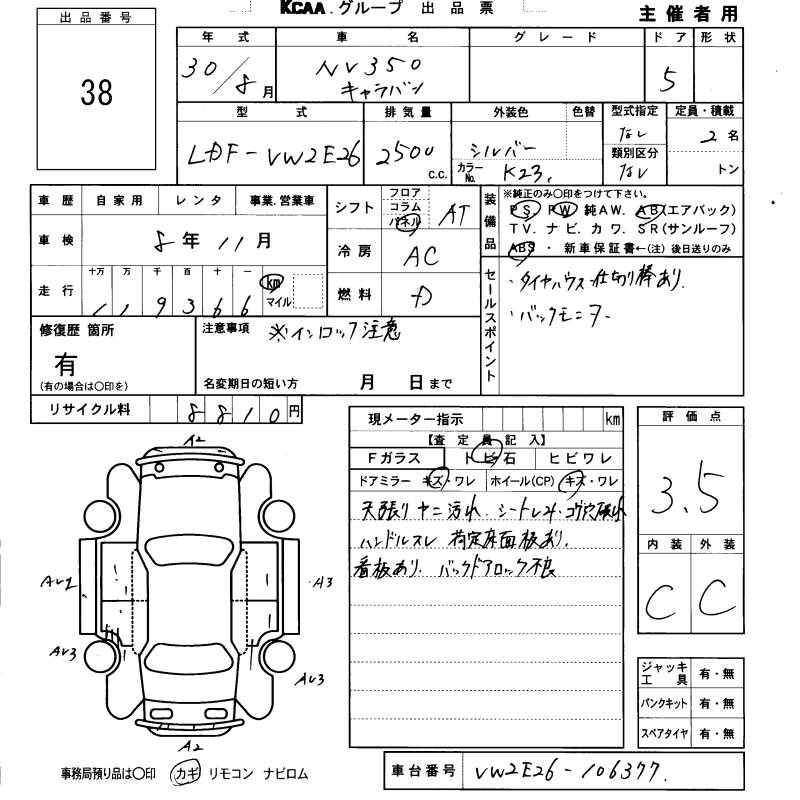 KCAA.グループ 出品票
主催者用
出品番号
38
年式 車名 グレード ドア 形状
30/8月 NV350 キャラバン 5
型式 排気量 外装色 色替 型式指定 定員・積載
LDF-VW2E26 2500 c.c. シルバー なし 2名
カラーNo. K23. 類別区分 なし トン
車歴 自家用 レンタ 事業.営業車
車検 8年11月
走行 十万 万 千 百 十 一 km マイル
119366
シフト フロア コラム パネル AT
冷房 AC
燃料 D
装備品 ※純正のみ〇印をつけて下さい。
PS. PW 純AW. AB(エアバック)
TV. ナビ. カワ. SR(サンルーフ)
ABS・新車保証書←(注)後日送りのみ
セールスポイント
・タイヤハウス仕切り棒あり.
・バックモニター
修復歴 箇所
有
(有の場合は〇印を)
注意事項 ※インロック注意
名変期日の短い方 月 日まで
リサイクル料 8810円
現メーター指示 km
【査定員記入】
Fガラス トビ石 ヒビワレ
ドアミラー キズ・ワレ ホイール(CP) キズ・ワレ
天張りヤニ汚れ. シートレスレ・コゲ穴破れ
ハンドルスレ 荷室床面板あり.
看板あり. バックドアロック不良
評価点
3.5
内装 外装
C C
A2
AU1
A3
AU3
AU3
A2
ジャッキ工具 有・無
パンクキット 有・無
スペアタイヤ 有・無
事務局預り品は〇印 カギ リモコン ナビロム
車台番号 VW2E26-106377.